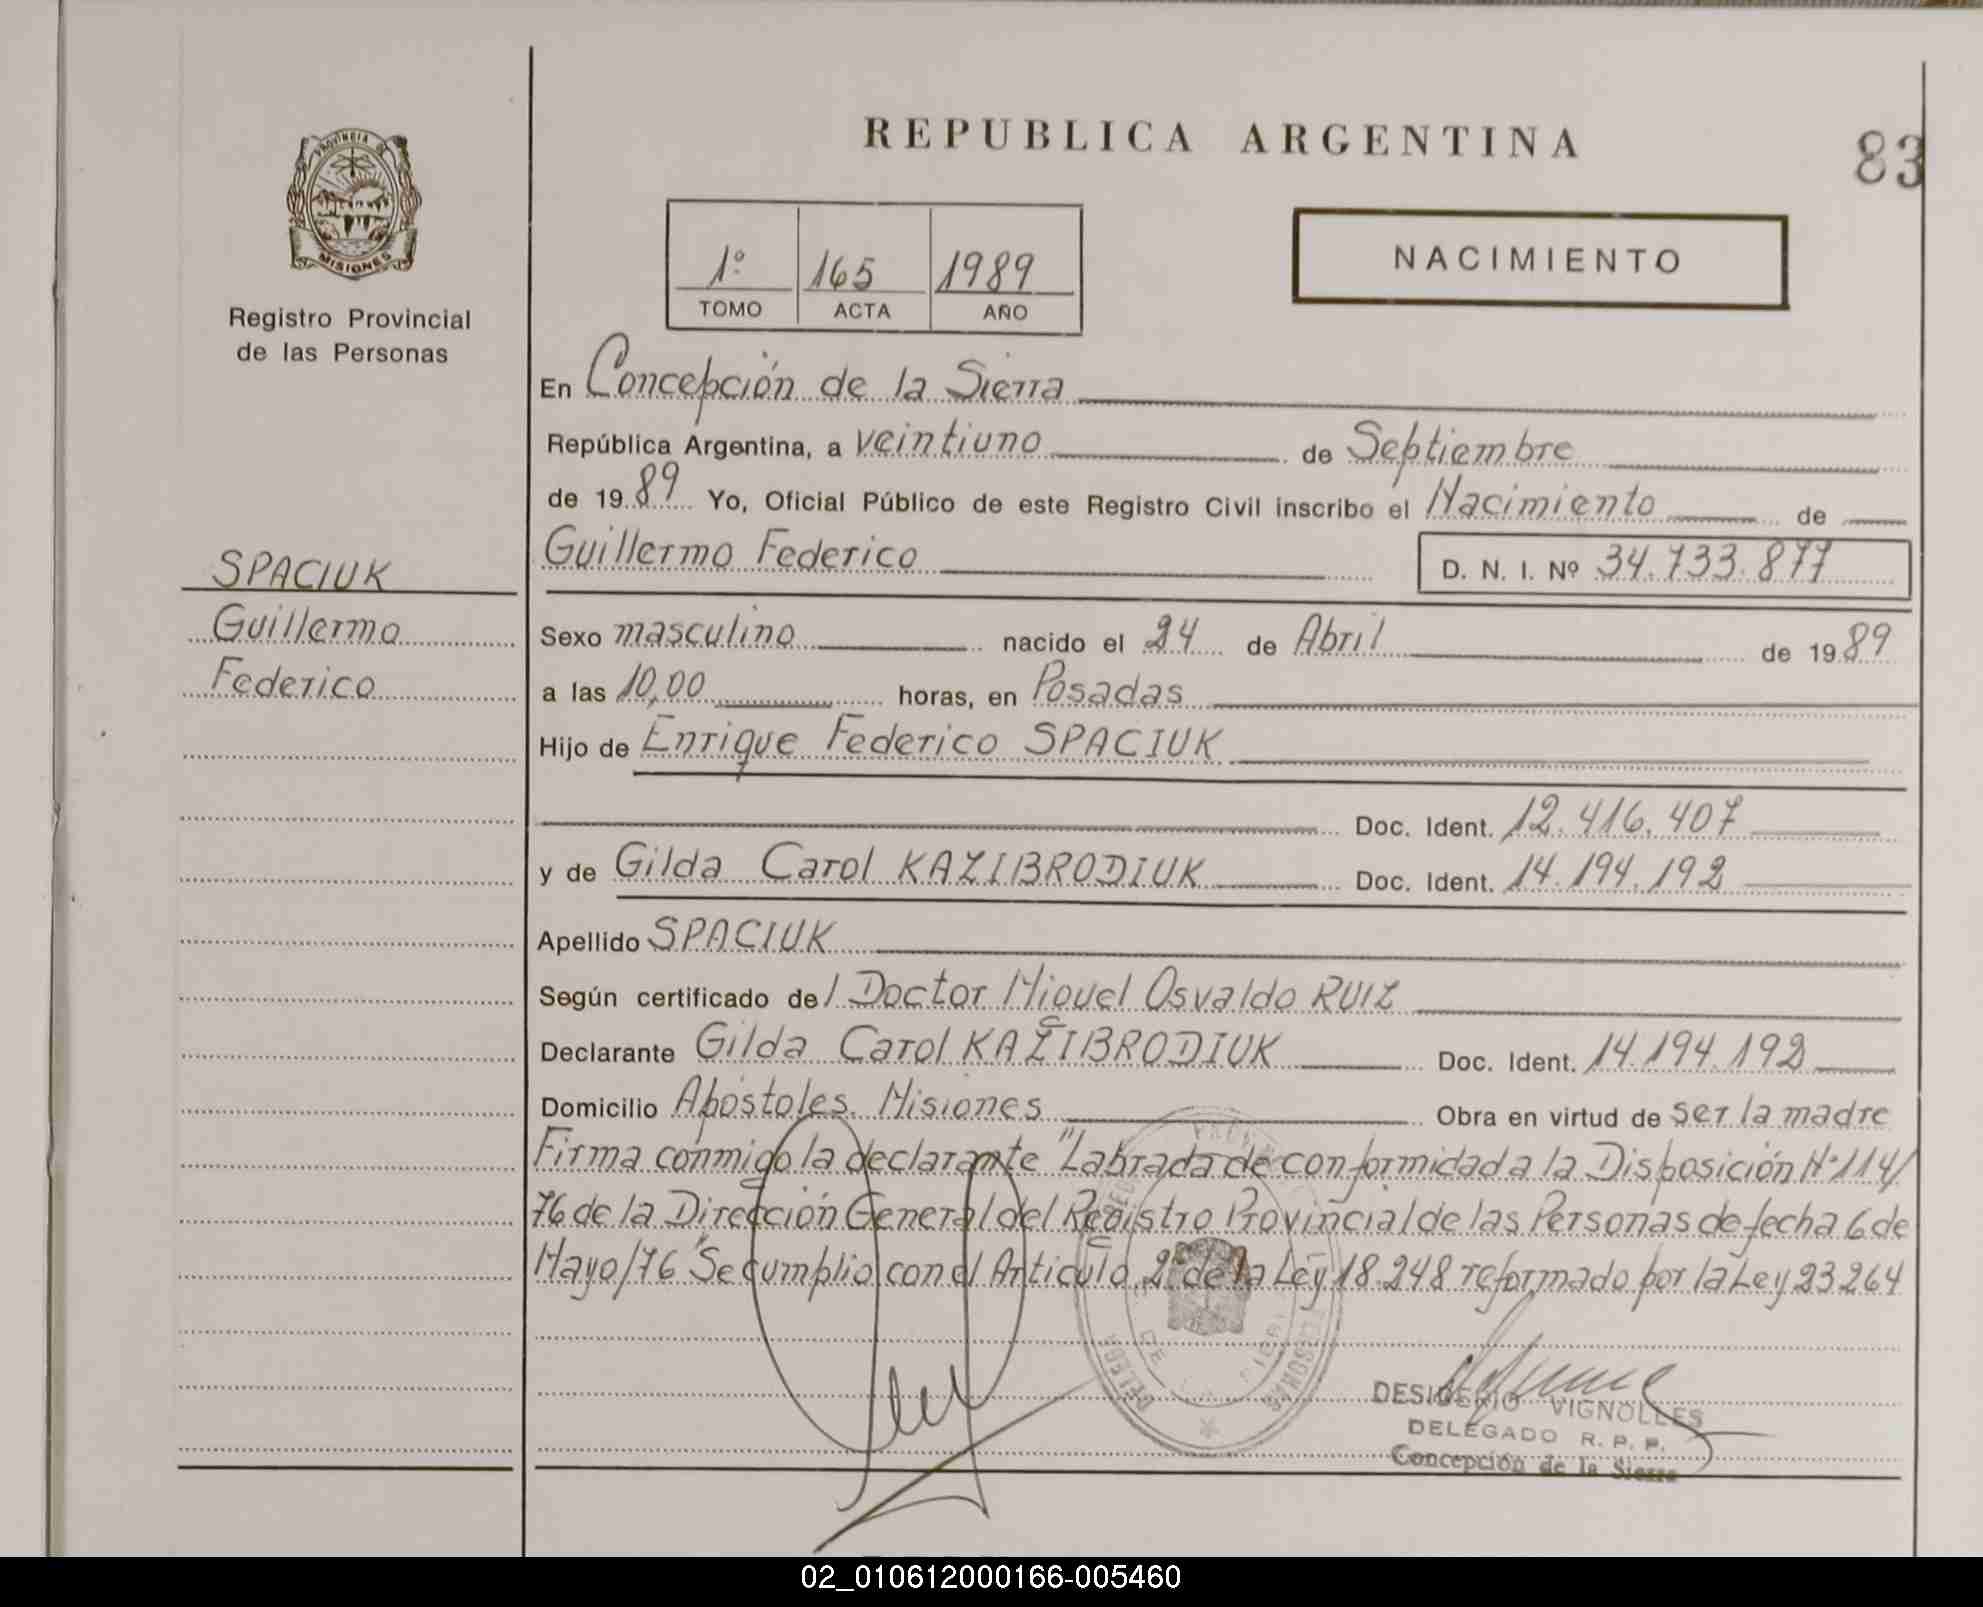 REPUBLICA ARGENTINA
83
PROVINCIA DE
MISIONES
Registro Provincial
de las Personas
1º 165 1989
TOMO ACTA AÑO
NACIMIENTO
En Concepción de la Sierra
República Argentina, a veintiuno de Septiembre
de 1989 Yo, Oficial Público de este Registro Civil inscribo el Nacimiento de
Guillermo Federico D. N. I. Nº 34.733.877
SPACIUK
Guillermo
Federico
Sexo masculino nacido el 24 de Abril de 1989
a las 10,00 horas, en Posadas
Hijo de Enrique Federico SPACIUK
Doc. Ident. 12.416.407
y de Gilda Carol KAZIBRODIUK Doc. Ident. 14.194.192
Apellido SPACIUK
Según certificado del Doctor Miguel Osvaldo RUIZ
Declarante Gilda Carol KAZIBRODIUK Doc. Ident. 14.194.192
Domicilio Apóstoles. Misiones Obra en virtud de ser la madre
Firma conmigo la declarante "Labrada de conformidad a la Disposición Nº 114/
76 de la Dirección General del Registro Provincial de las Personas de fecha 6 de
Mayo/76" Se cumplio con el Articulo 2º de la Ley 18.248 reformado por la Ley 23264
DESIDERIO VIGNOLLES
DELEGADO R. P. P.
Concepción de la Sierra
02_010612000166-005460